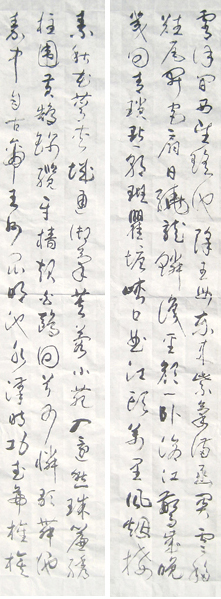 霄漢間西望瑤池降王母東來紫氣滿函關雲移
雉尾開宮扇日繞龍鱗識聖顏一臥滄江驚歲晚
幾回青瑣點朝班瞿塘峽口曲江頭萬里風煙接
素秋花萼夾城通御氣芙蓉小苑入邊愁珠簾繡
柱圍黃鵠錦纜牙檣起白鷗回首可憐歌舞地
秦中自古帝王州昆明池水漢時功武帝旌旗